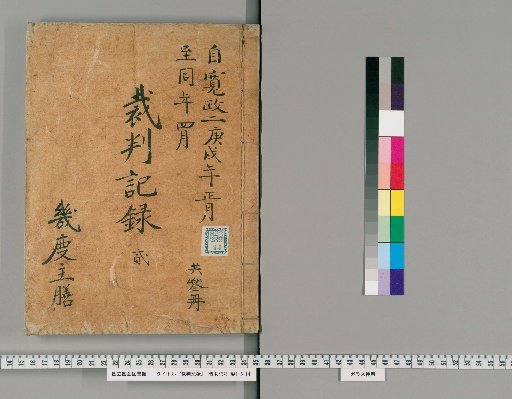 自寛政二庚戌年正月
至同年四月
裁判記録
貳
共参册
幾度主膳